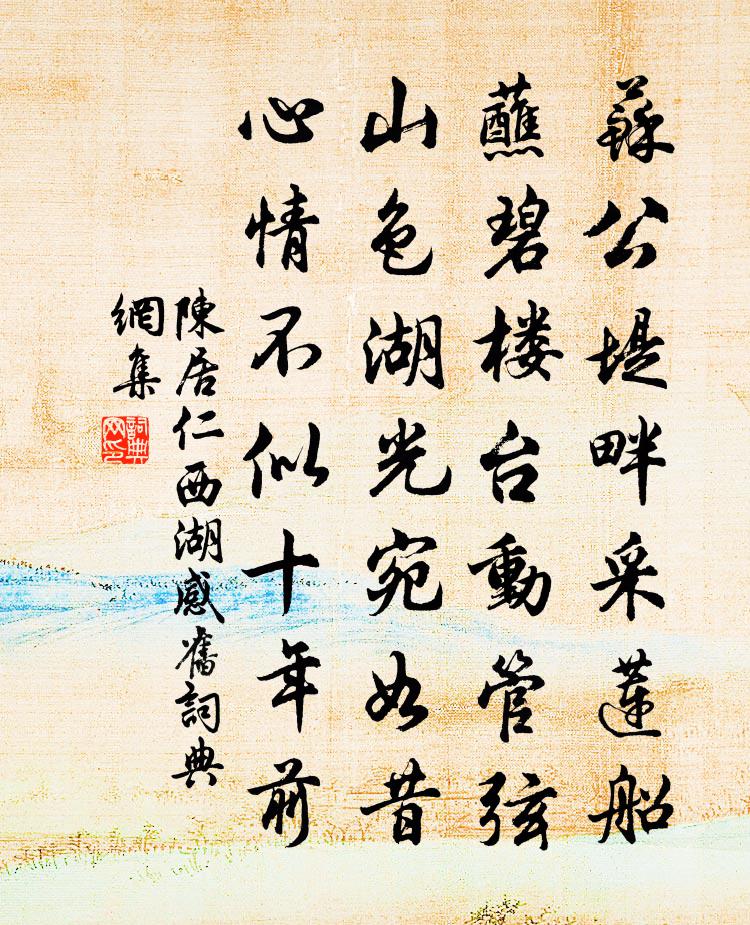 蘇公堤畔采蓮船
蘸碧楼台動管弦
山色湖光宛如昔
心情不似十年前
陳居仁西湖感舊詞典
網集
詞典
网印